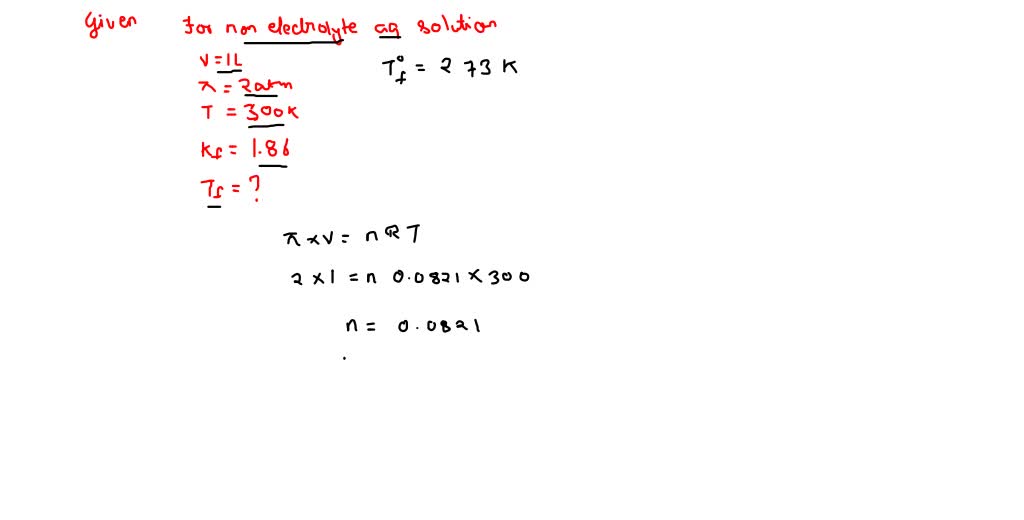 Given For non electrolyte aq solution
V = 1L
T°f = 273 K
π = 2atm
T = 300K
Kf = 1.86
Tf = ?
π × V = n R T
2 × 1 = n 0.0821 × 300
n = 0.0821